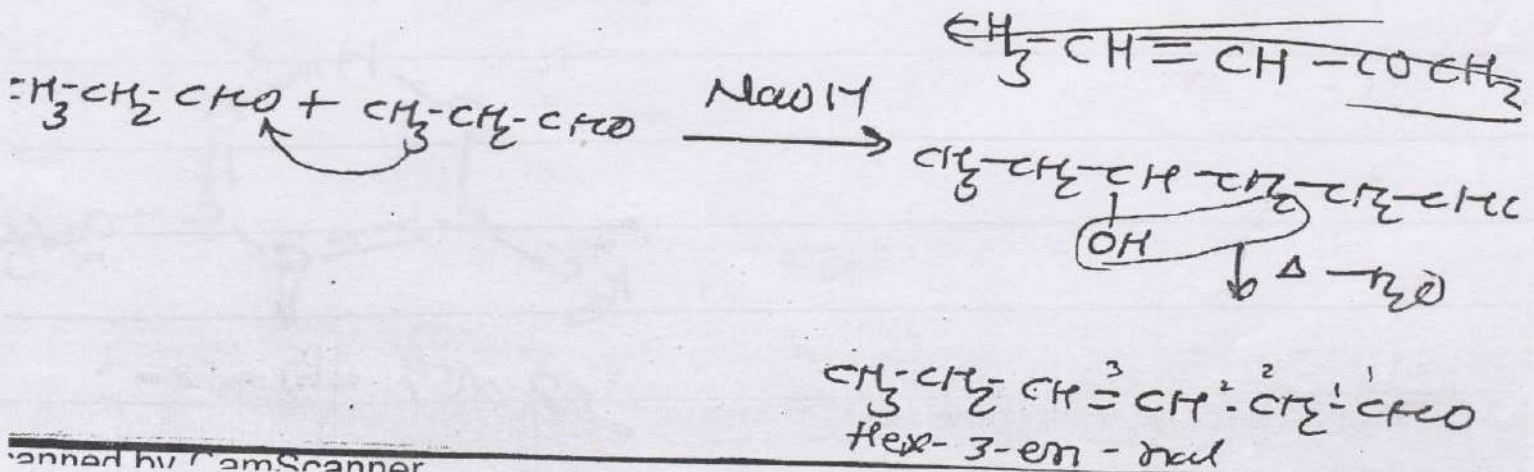 CH3-CH=CH-COCH2
:H3-CH2-CHO + CH3-CH2-CHO NaOH
CH3-CH2-CH-CH2-CH2-CHC
OH
Δ -H2O
3 2 1
CH3-CH2-CH=CH-CH2-CHO
Hex-3-en-nal
anned by CamScanner